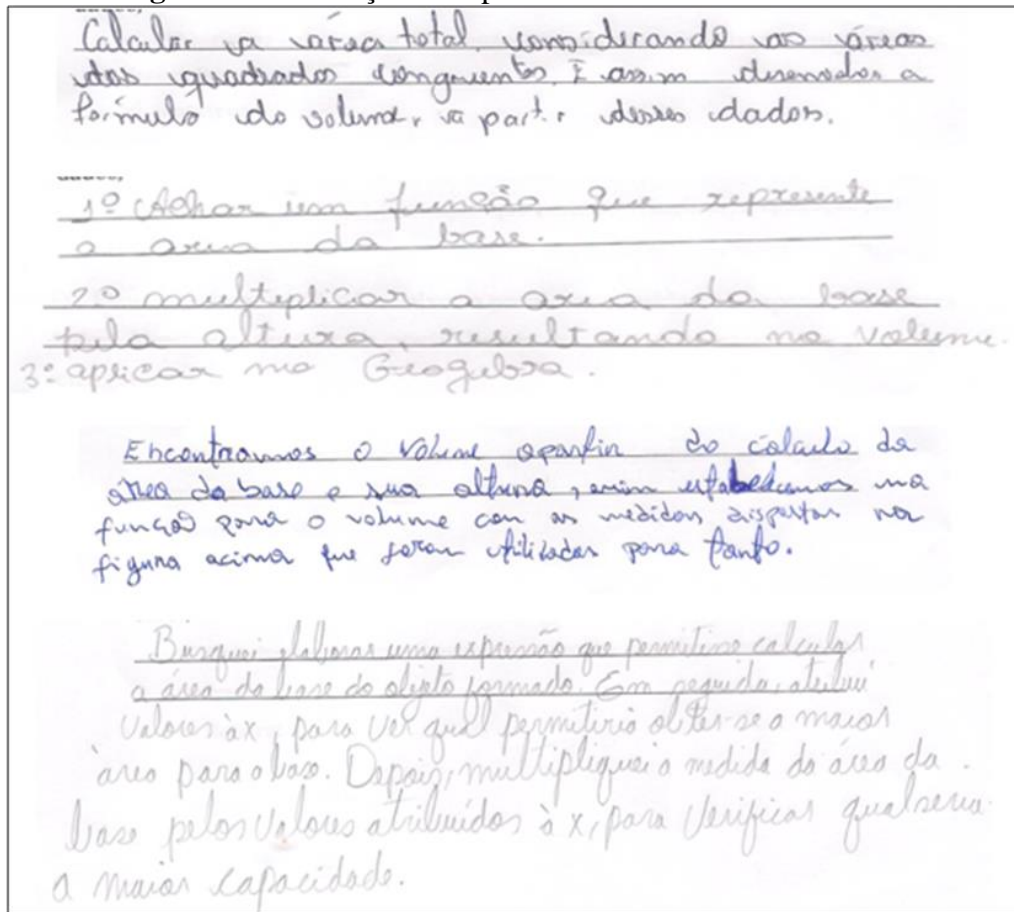 Calcular a área total, considerando as áreas
dos quadrados congruentes. E assim a
fórmula do volume, a partir desses dados.
1º Achar um função que represente
a area da base.
2º multiplicar a area da base
pela altura, resultando no volume.
3º aplicar no Geogebra.
Encontramos o volume apartir do calculo da
área da base e sua altura, assim estabelecemos uma
função para o volume com as medidas dispostas na
figura acima que foram utilizadas para tanto.
Busquei elaborar uma expressão que permitisse calcular
a área da base do objeto formado. Em seguida, atribui
valores à x, para ver qual permitiria obter-se a maior
área para a base. Depois, multipliquei a medida da área da
base pelos valores atribuídos à x, para verificar qual seria
a maior capacidade.